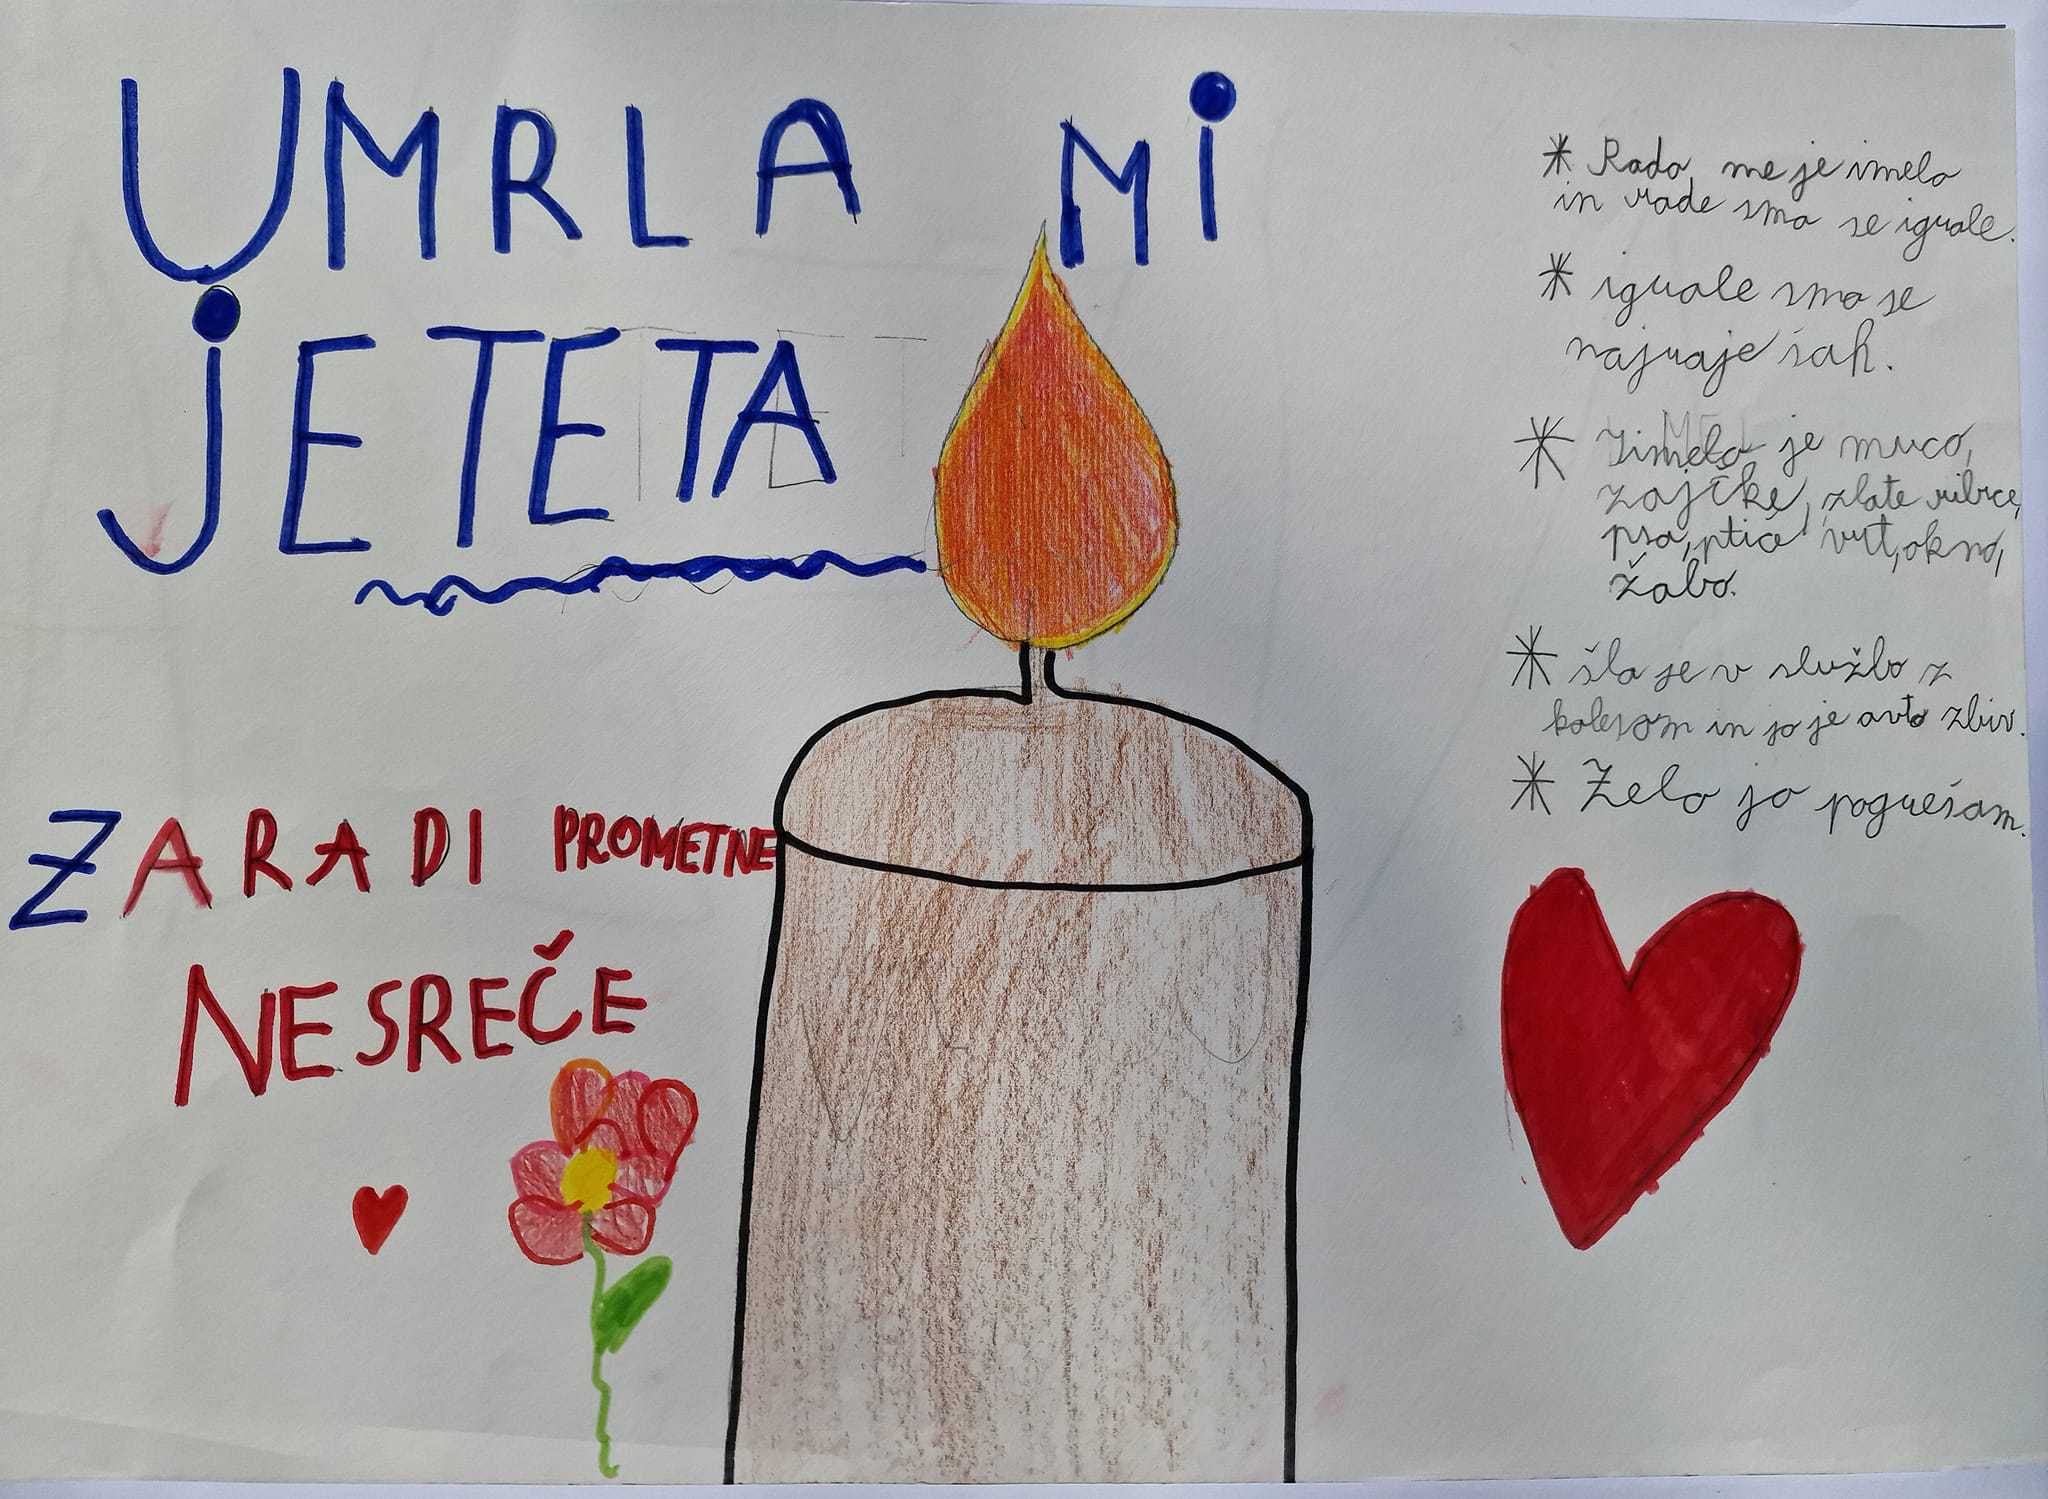 UMRLA MI
JE TETA
ZARADI PROMETNE
NESREČE
* Rada me je imela
in rade smo se igrale.
* igrale smo se
najraje šah.
* Imela je muco,
zajčke, zlate ribice,
psa, ptice, vrt, okno,
žabo.
* šla je v službo z
kolesom in jo je avto zbiv.
* Zelo jo pogrešam.